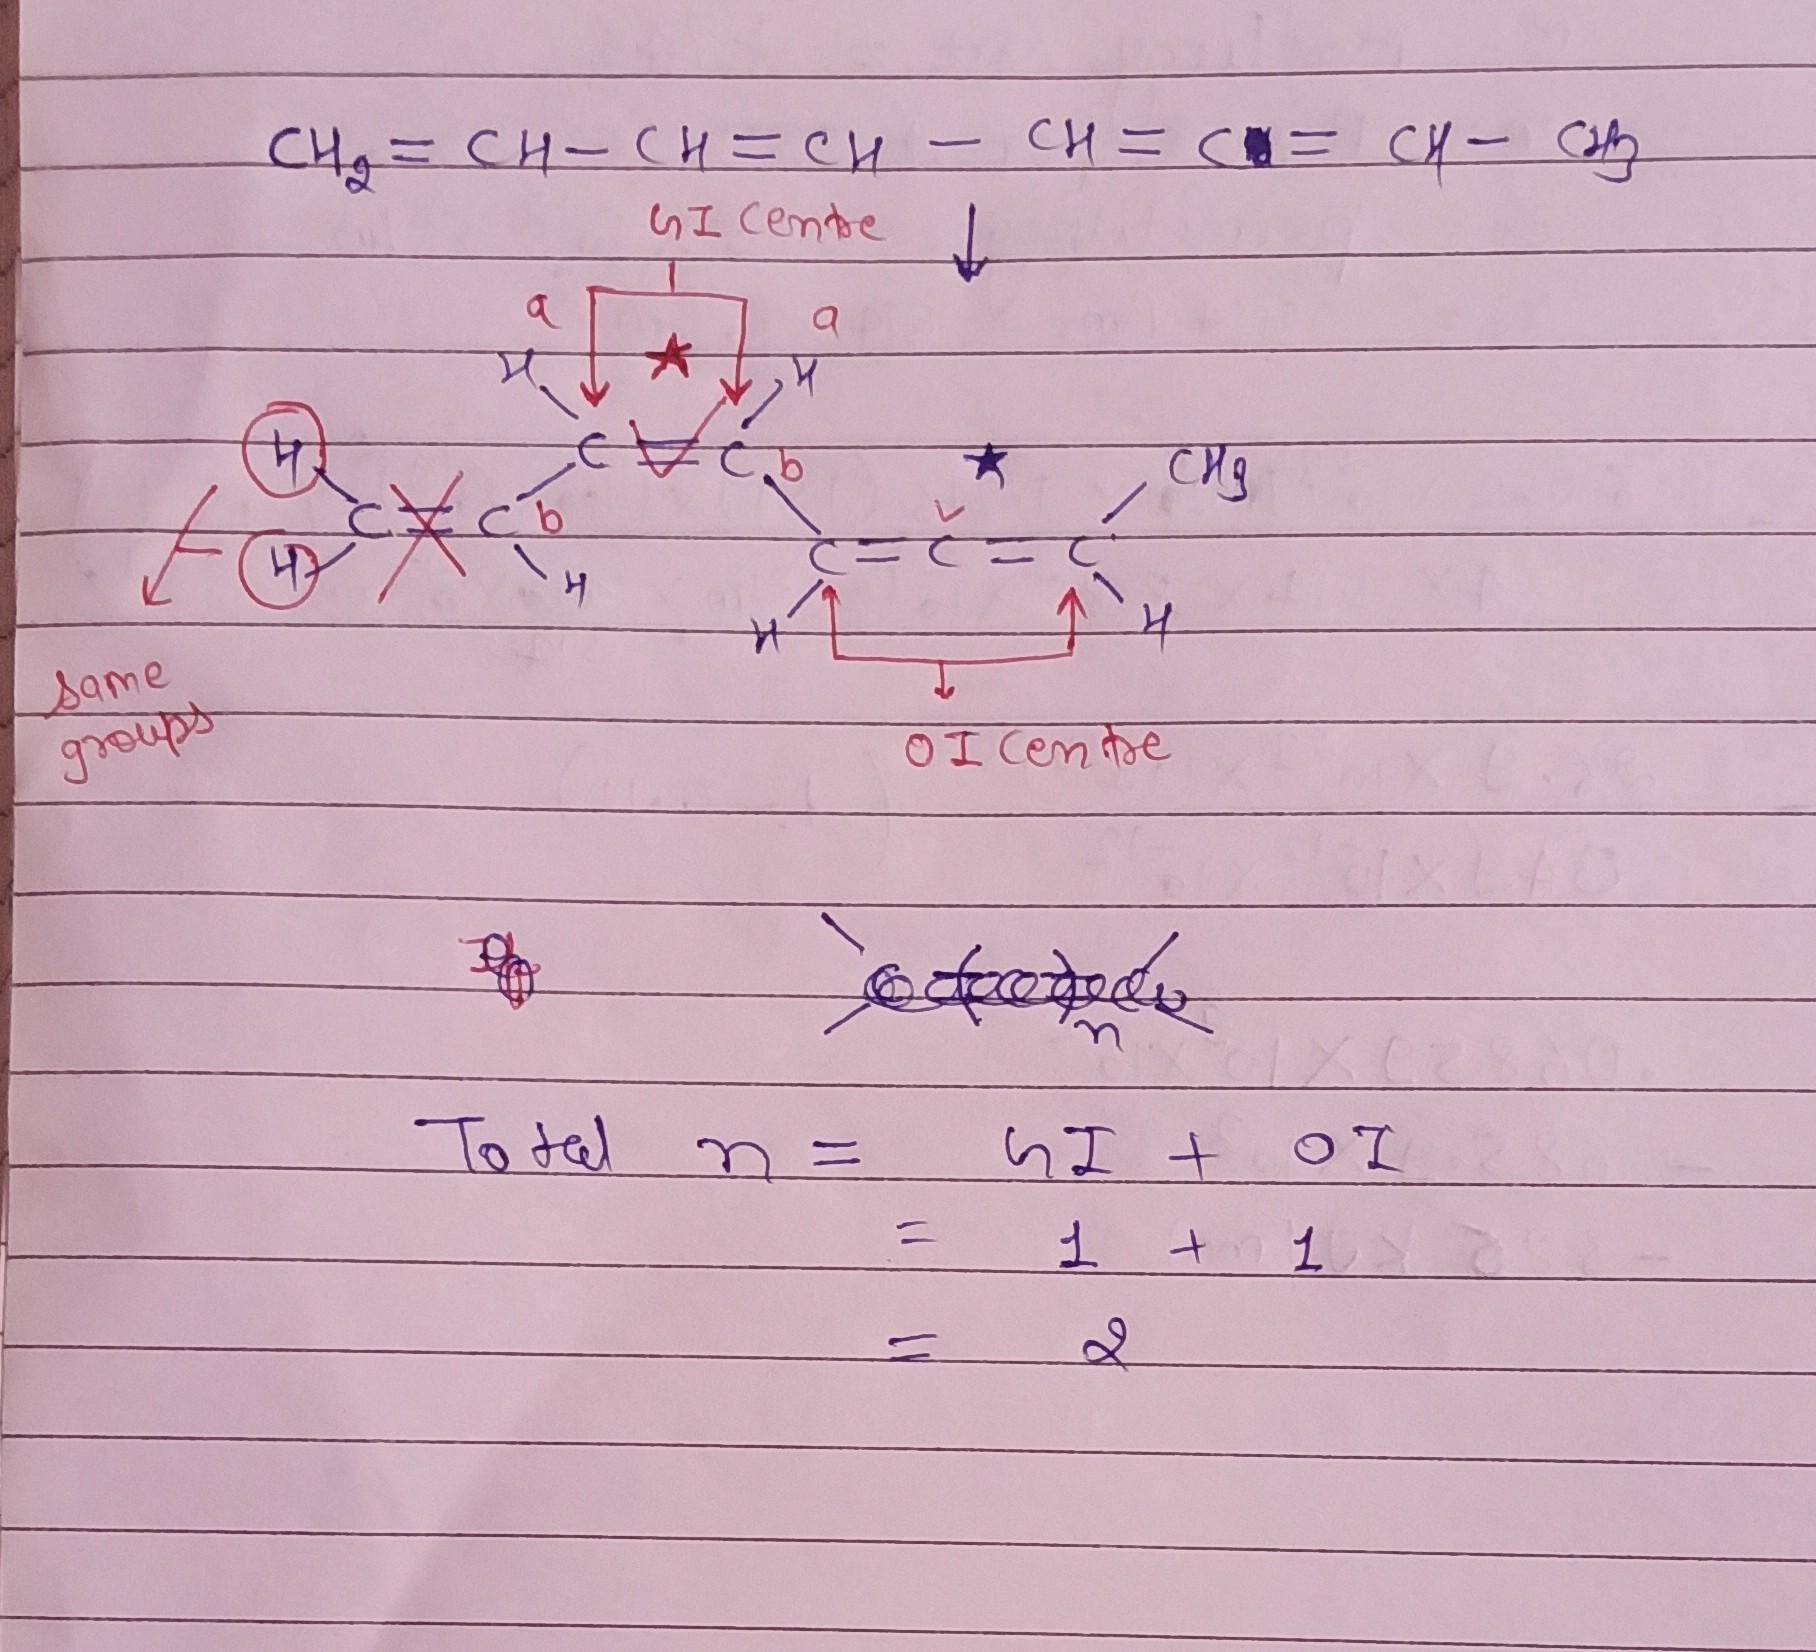 CH2 = CH - CH = CH - CH = C = CH - CH3
GI Centre
a a
H H
H C = C b CH3
C = C b C = C = C
H H H H
same
groups
OI Centre
n
Total n = GI + OI
= 1 + 1
= 2